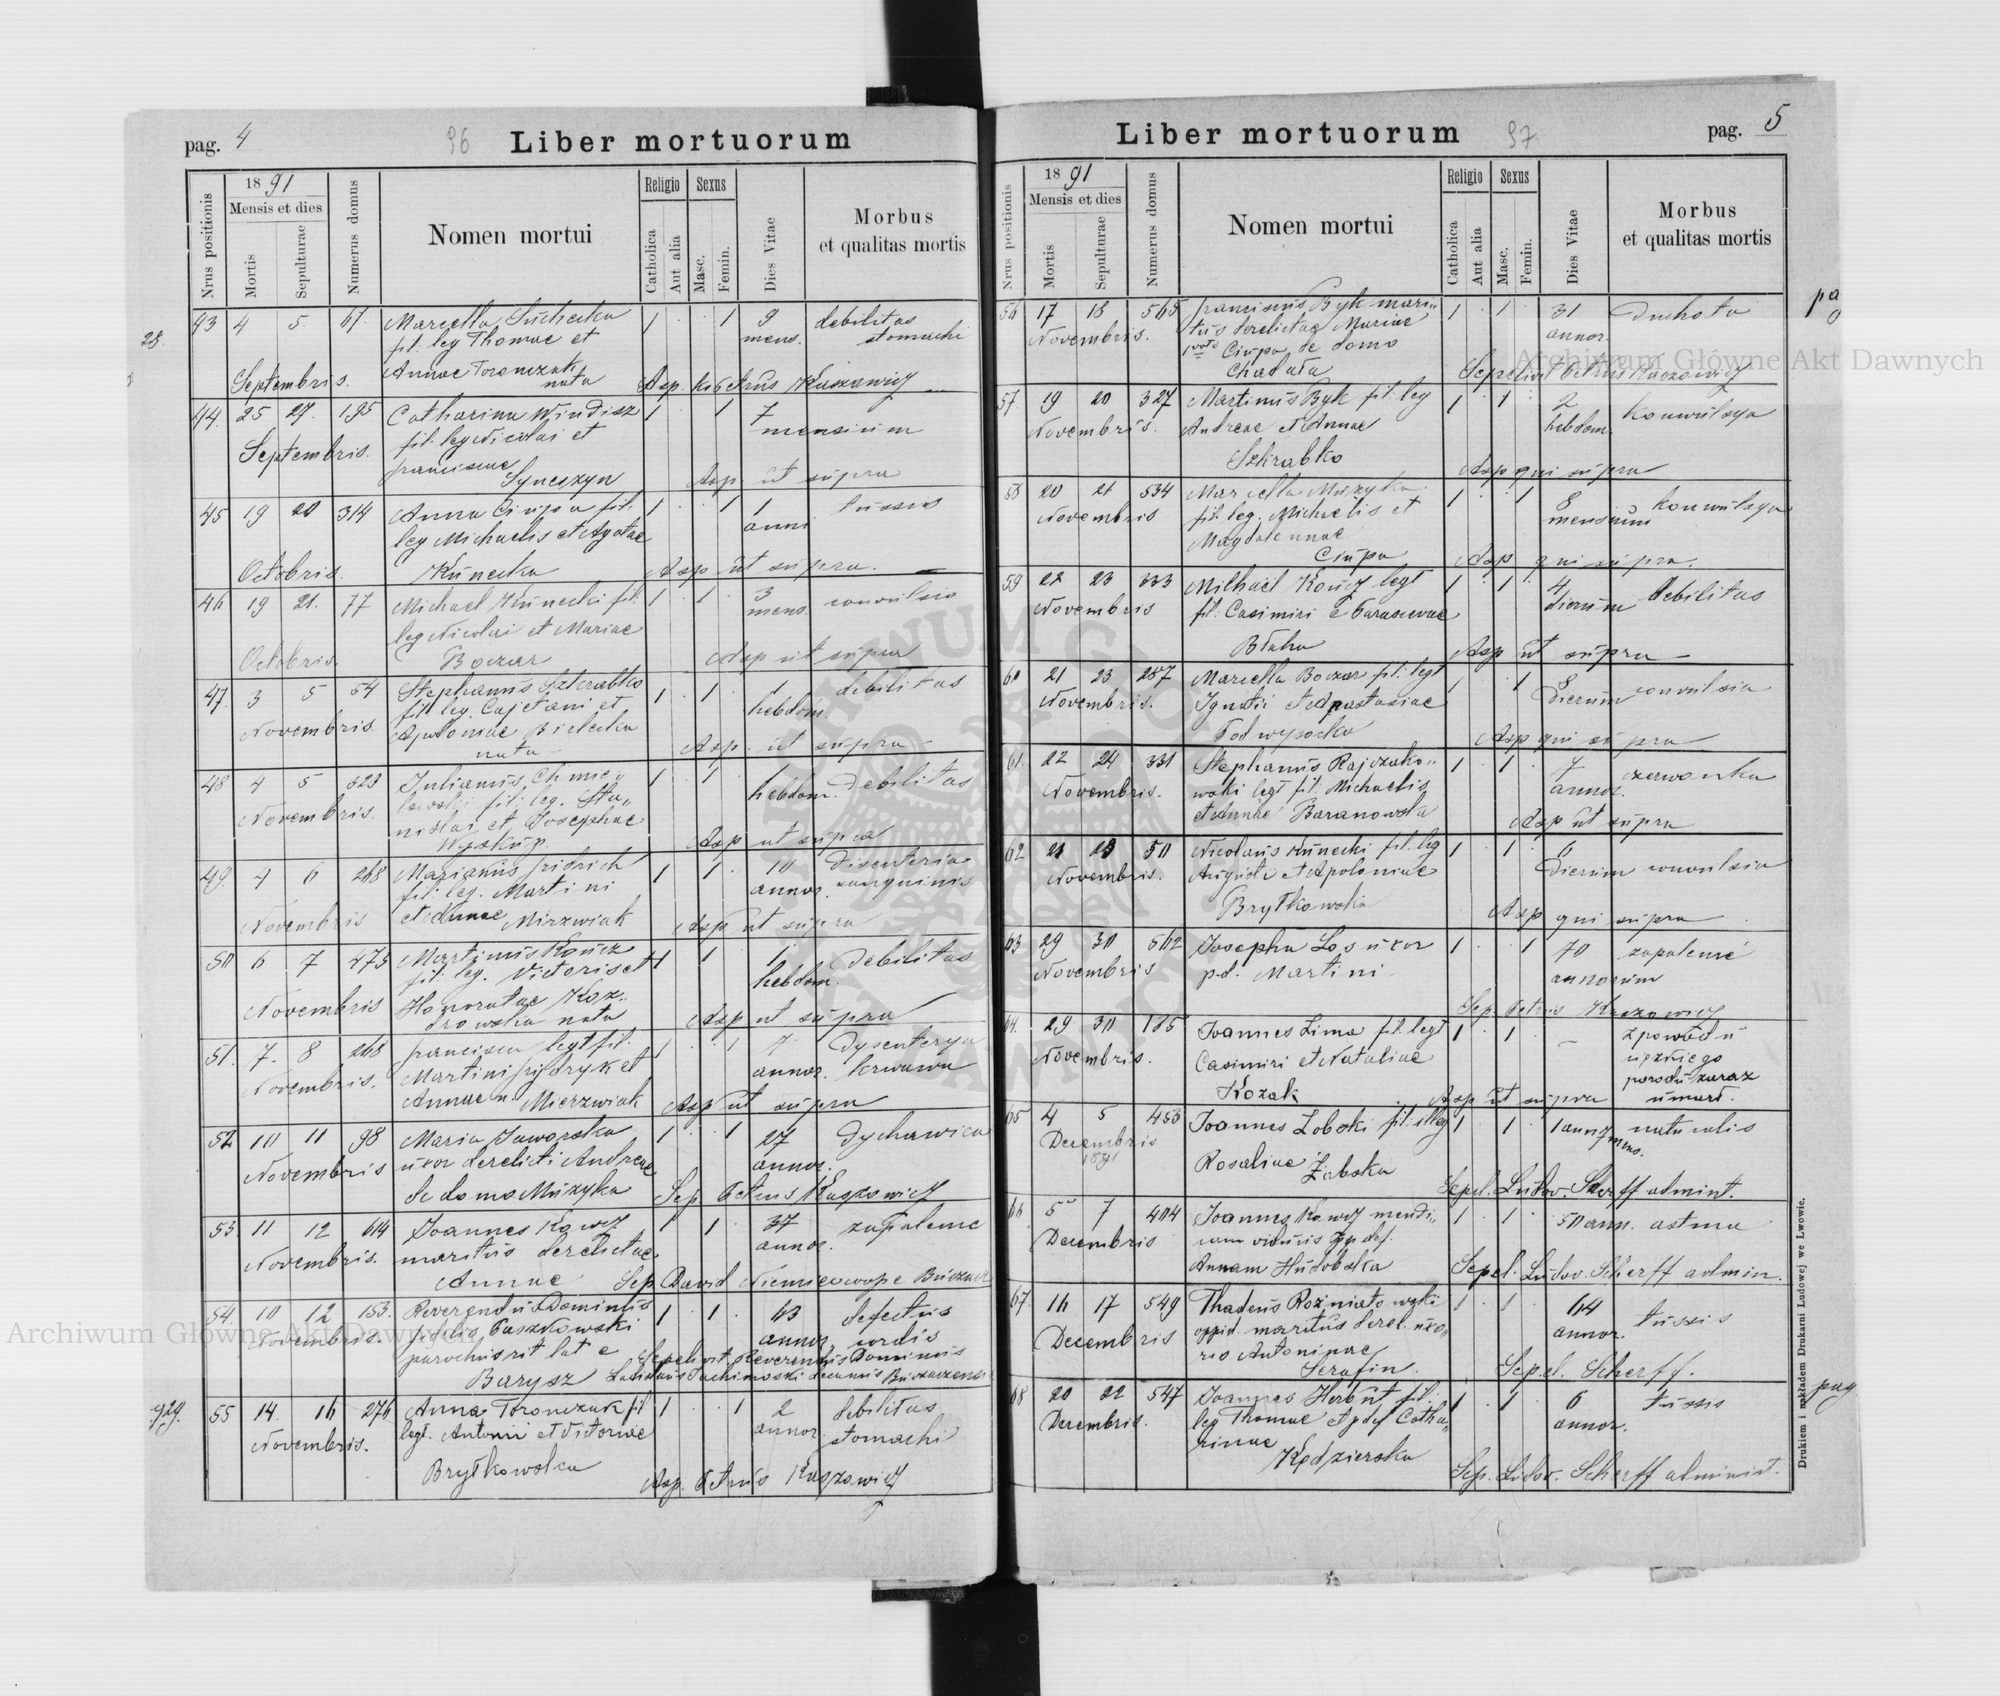 pag. 4
96
Liber mortuorum
Nrus positionis
1891
Mensis et dies
Mortis
Sepulturae
Numerus domus
Nomen mortui
Religio
Catholica
Aut alia
Sexus
Masc.
Femin.
Dies Vitae
Morbus
et qualitas mortis
43 4 5. 67. Marcella Suchecka 1 1 9 debilitas
fil. leg Thomae et mens. stomachi
Annae Toronczak
Septembris. nata
44. 25 27. 195 Catharina Windisz 1 1 7
fil. leg Nicolai et mensium
Septembris.
franciscae
Syneszyn Asp ut supra
45 19 20 314 Anna Ciupa fil. 1 1 1 tussis
leg Michaelis et Agatae anni
Octobris. Kunecka Asp ut supra.
46 19 21. 77 Michael Kunecki fil. 1 1 3 convulsio
leg Nicolai et Mariae mens.
Octobris Boczar Asp ut supra
47. 3 5 54 Stephanus Szkrabko 1 1 1 debilitas
fil. leg. Cajetani et hebdom.
Novembris Apoloniae Bielecka
nata Asp. ut supra
48 4 5 323 Julianus Chmie„ 1 1 1 Debilitas
lewski fil. leg. Sta„ hebdom.
Novembris. nislai et Josephae
Wyskup. Asp ut supra
49. 4 6 268 Marianus fridrich 1 1 10 disenteria
fil. leg. Martini annor. sanguinis
Novembris et Annae Mirzwiak Asp ut supra
50 6 7 475 Martinus Koucz 1 1 1 Debilitas
fil. leg. Victoris et hebdom.
Novembris Honoratae Koz„
drowska nata Asp ut supra
51. 7. 8 268 francisca legt fil. 1 1 7 Dysenterya
Novembris. Martini frydryk et annor. krwawa
Annae n. Mierzwiak Asp ut supra
52 10 11 98 Maria Jaworska 1 1 27 Dychawica
Novembris uxor derelicti Andreae annor.
de domo Muzyka Sep Petrus Kaszowicz
53. 11 12 614 Joannes Kawcz 1 1 37 zapalenie
Novembris. maritus derelictae annor.
Annae Sep David
54. 10 12 153. Reverendus Dominus 1 1 63 defectus
Novembris. fidelis Paszkowski annor. cordis
parochus rit lat e Sepelivit Reverendus Dominus
Barysz
929. 55 14. 16 276 Anna Toronczak fil 1 1 2 debilitas
Novembris. legt. Antonii et Victoriae annor. stomachi
Brytkowska Asp. Petrus Kaszowicz
Liber mortuorum
97.
pag. 5
Nrus positionis
1891
Mensis et dies
Mortis
Sepulturae
Numerus domus
Nomen mortui
Religio
Catholica
Aut alia
Sexus
Masc.
Femin.
Dies Vitae
Morbus
et qualitas mortis
56 17 18 565 franciscus Byk mari„ 1 1 31 Duchota
Novembris. tus derelictae Mariae annor.
Ciupa de domo
Chadała
57 19 20 327 Martinus Byk fil. leg 1 1 2 konwulsya
Novembris. Andreae et Annae hebdom.
Szkrabko Asp qui supra
58 20 21 534 Marcella Muzyka 1 1 8 konwulsya
Novembris fil. leg. Michaelis et mensium
Magdalennae
Ciupa Asp qui supra.
59 22 23 333 Michael Koucz legt 1 1 4 debilitas
Novembris fil. Casimiri e Parascevae dierum
Błaha Asp ut supra
60 21 23 287 Marcella Boczar fil. legt 1 1 8 convulsia
Novembris. Ignatii et Anastasiae Dierum
Podwysocka Asp qui supra
61. 22 24 331 Stephanus Rajczako„ 1 1 7 czerwonka
Novembris. wski legt fil. Michaelis annor.
et Annae Baranowska Asp ut supra
62 21 23 50 Nicolaus Kunecki fil. leg 1 1 6
Novembris. et Apoloniae Dierum convulsia
Brytkowska Asp qui supra
63 29 30 562 Josepha Los uxor 1 1 70 zapalenie
Novembris p.d. Martini annorum
Sep. Petrus Kaszowicz
64. 29 30 185 Joannes Lima fil. legt 1 1 z powodu
Novembris. Casimiri et Nataliae ciężkiego
Kozak porodu zaraz
Asp ut supra umarł.
65 4 5 453 Joannes Zobski fil. illeg 1 1 1 ann 7 mens. naturalis
Decembris
1891 Rosaliae Zabska
Sepel. Ludov. Scherff admint.
66 5 7 404 Joannes Kawcz mendi„ 1 1 50 ann. astma
Decembris
Annam Hudobska Sepel. Ludov. Scherff admin.
67. 16 17 549 Thadeus Rozniatowski 1 1 64 tussis
Decembris oppid. maritus derel. uxo„ annor.
rio Antoninae
Serafin. Sepel. Scherff.
68 20 22 547 Joannes Herbut fil. 1 1 6 tussis
Decembris. leg Thomae et pdef Catha„ annor.
rinae
Kędzierska Sep. Ludov. Scherff administ.
Drukiem i nakładem Drukarni Ludowej we Lwowie.
Archiwum Główne Akt Dawnych
Archiwum Główne Akt Dawnych